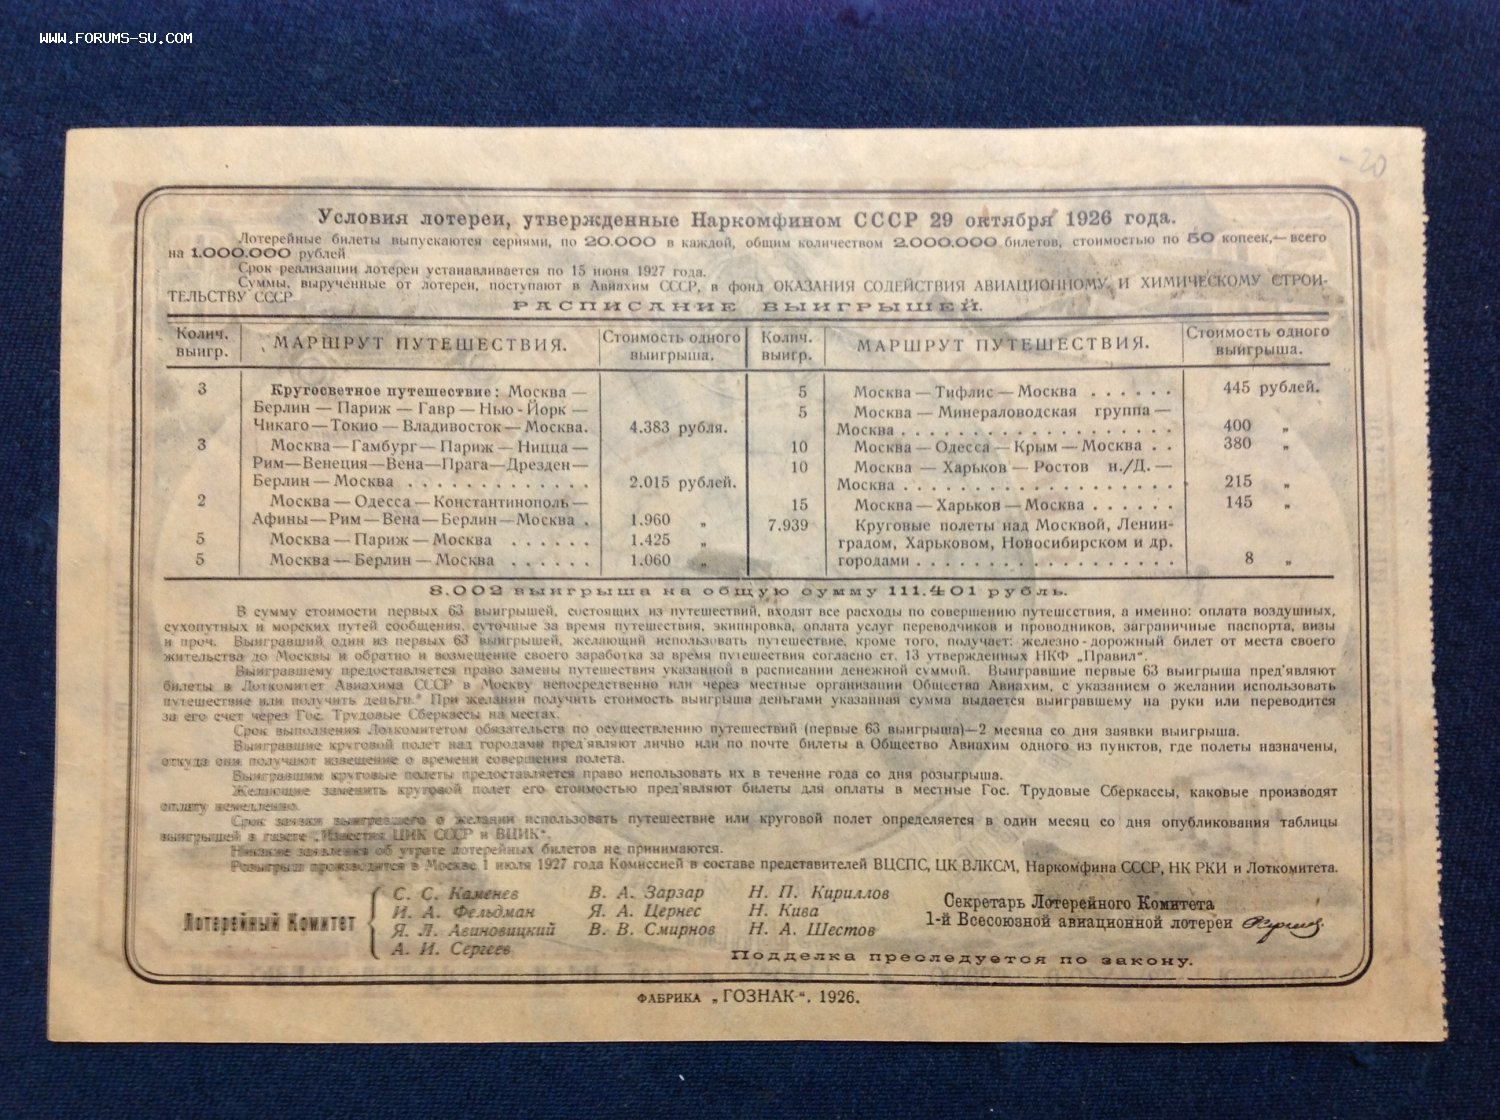 WWW.FORUMS-SU.COM
-20
Условия лотереи, утвержденные Наркомфином СССР 29 октября 1926 года.
Лотерейные билеты выпускаются сериями, по 20.000 в каждой, общим количеством 2.000.000 билетов, стоимостью по 50 копеек,—всего
на 1.000.000 рублей
Срок реализации лотереи устанавливается по 15 июня 1927 года.
Суммы, вырученные от лотереи, поступают в Авиахим СССР, в фонд ОКАЗАНИЯ СОДЕЙСТВИЯ АВИАЦИОННОМУ И ХИМИЧЕСКОМУ СТРОИ-
ТЕЛЬСТВУ СССР
РАСПИСАНИЕ ВЫИГРЫШЕЙ.
Колич. выигр. МАРШРУТ ПУТЕШЕСТВИЯ. Стоимость одного выигрыша.
3 Кругосветное путешествие: Москва —
Берлин — Париж — Гавр — Нью-Йорк —
Чикаго — Токио — Владивосток — Москва. 4.383 рубля.
3 Москва—Гамбург—Париж—Ницца—
Рим—Венеция—Вена—Прага—Дрезден—
Берлин — Москва . . . . . . . . . . . . . 2.015 рублей.
2 Москва—Одесса—Константинополь—
Афины—Рим—Вена—Берлин—Москва . 1.960 „
5 Москва — Париж — Москва . . . . . . 1.425 „
5 Москва — Берлин — Москва . . . . . . 1.060 „
Колич. выигр. МАРШРУТ ПУТЕШЕСТВИЯ. Стоимость одного выигрыша.
5 Москва — Тифлис — Москва . . . . . . 445 рублей.
5 Москва — Минераловодская группа —
Москва . . . . . . . . . . . . . . . . . . . 400 „
10 Москва — Одесса — Крым — Москва . . 380 „
10 Москва — Харьков — Ростов н./Д. —
Москва . . . . . . . . . . . . . . . . . . . 215 „
15 Москва — Харьков — Москва . . . . . . 145 „
7.939 Круговые полеты над Москвой, Ленин-
градом, Харьковом, Новосибирском и др.
городами . . . . . . . . . . . . . . . . . . 8 „
8.002 выигрыша на общую сумму 111.401 рубль.
В сумму стоимости первых 63 выигрышей, состоящих из путешествий, входят все расходы по совершению путешествия, а именно: оплата воздушных,
сухопутных и морских путей сообщения, суточные за время путешествия, экипировка, оплата услуг переводчиков и проводников, заграничные паспорта, визы
и проч. Выигравший один из первых 63 выигрышей, желающий использовать путешествие, кроме того, получает: железно-дорожный билет от места своего
жительства до Москвы и обратно и возмещение своего заработка за время путешествия согласно ст. 13 утвержденных НКФ „Правил“.
Выигравшему предоставляется право замены путешествия указанной в расписании денежной суммой. Выигравшие первые 63 выигрыша пред'являют
билеты в Лоткомитет Авиахима СССР в Москву непосредственно или через местные организации Общества Авиахим, с указанием о желании использовать
путешествие или получить деньги. При желании получить стоимость выигрыша деньгами указанная сумма выдается выигравшему на руки или переводится
за его счет через Гос. Трудовые Сберкассы на местах.
Срок выполнения Лоткомитетом обязательств по осуществлению путешествий (первые 63 выигрыша)—2 месяца со дня заявки выигрыша.
Выигравшие круговой полет над городами пред'являют лично или по почте билеты в Общество Авиахим одного из пунктов, где полеты назначены,
откуда они получают извещение о времени совершения полета.
Выигравшим круговые полеты предоставляется право использовать их в течение года со дня розыгрыша.
Желающие заменить круговой полет его стоимостью пред'являют билеты для оплаты в местные Гос. Трудовые Сберкассы, каковые производят
оплату немедленно.
Срок заявки выигравшего о желании использовать путешествие или круговой полет определяется в один месяц со дня опубликования таблицы
выигрышей в газете „Известия ЦИК СССР и ВЦИК“.
Никакие заявления об утрате лотерейных билетов не принимаются.
Розыгрыш производится в Москве 1 июля 1927 года Комиссией в составе представителей ВЦСПС, ЦК ВЛКСМ, Наркомфина СССР, НК РКИ и Лоткомитета.
Лотерейный Комитет
С. С. Каменев
И. А. Фельдман
Я. Л. Авиновицкий
А. И. Сергеев
В. А. Зарзар
Я. А. Цернес
В. В. Смирнов
Н. П. Кириллов
Н. Кива
Н. А. Шестов
Секретарь Лотерейного Комитета
1-й Всесоюзной авиационной лотереи
Подделка преследуется по закону.
ФАБРИКА „ГОЗНАК“. 1926.